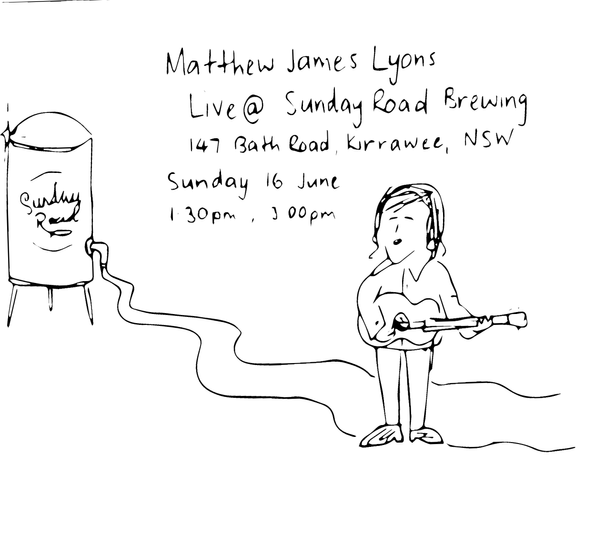 Matthew James Lyons
Live@ Sunday Road Brewing
147 Bath Road, Kirrawee, NSW
Sunday 16 June
1.30pm, 3 00pm
Sunday
Road